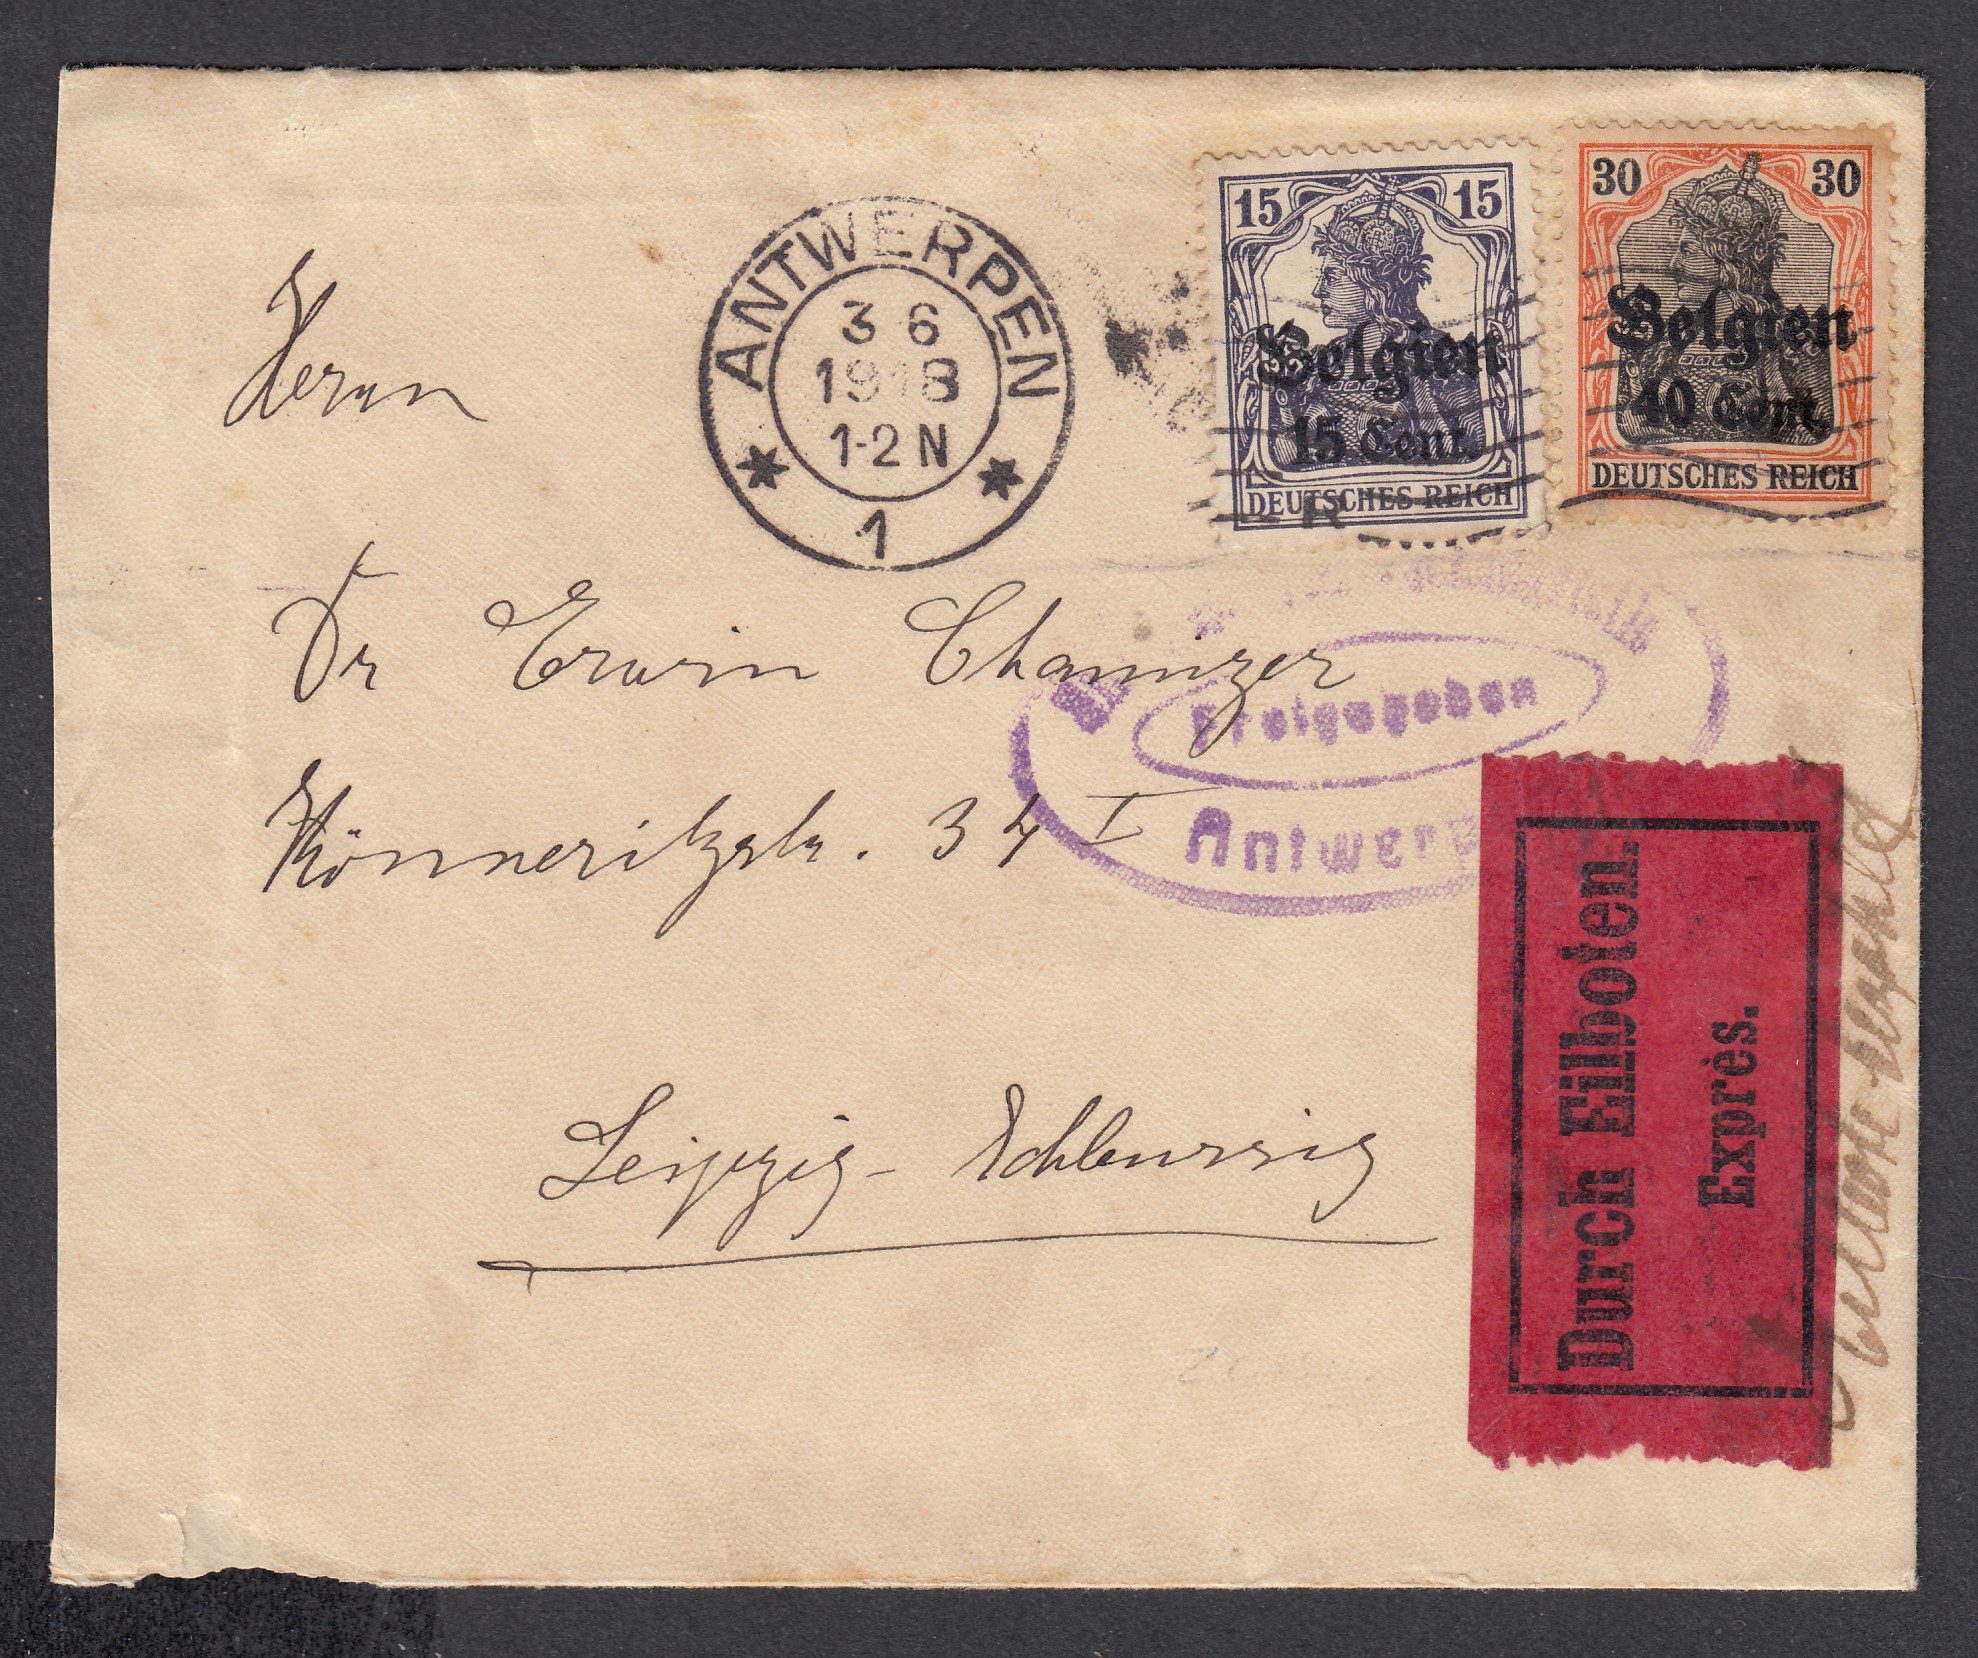 ANTWERPEN
3 6
1918
1-2 N
* 1 *
15 15
Belgien
15 Cent.
DEUTSCHES REICH
30 30
Belgien
40 Cent.
DEUTSCHES REICH
Herrn
Dr Erwin Chamizer
Könneritzstr. 34 I
Leipzig - Schleussig
Freigegeben
Antwerp
Durch Eilboten.
Exprès.